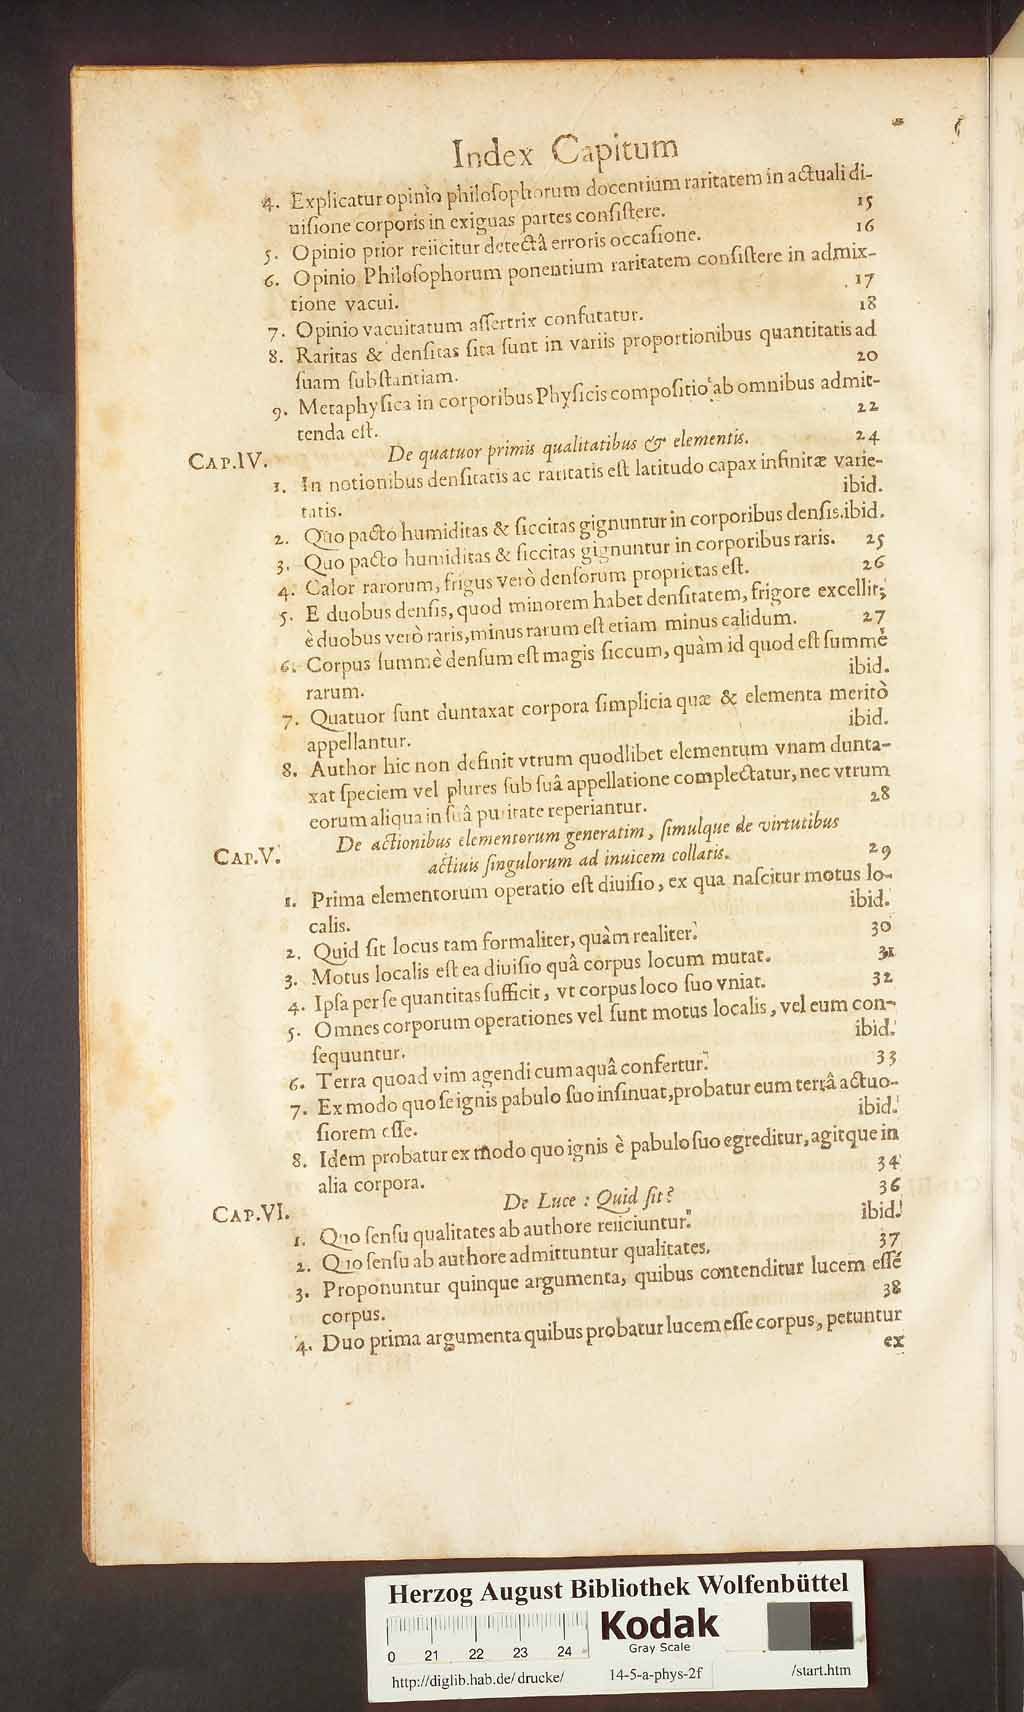 Index Capitum
4. Explicatur opinio philoſophorum docentium raritatem in actuali di-
uiſione corporis in exiguas partes conſiſtere. 15
5. Opinio prior reiicitur detectâ erroris occaſione. 16
6. Opinio Philoſophorum ponentium raritatem conſiſtere in admix-
tione vacui. 17
7. Opinio vacuitatum aſſertrix confutatur. 18
8. Raritas & denſitas ſita ſunt in variis proportionibus quantitatis ad
ſuam ſubſtantiam. 20
9. Metaphyſica in corporibus Phyſicis compoſitio ab omnibus admit-
tenda eſt. 22
CAP.IV. De quatuor primis qualitatibus & elementis. 24
1. In notionibus denſitatis ac raritatis eſt latitudo capax infinitæ varie-
tatis. ibid.
2. Quo pacto humiditas & ſiccitas gignuntur in corporibus denſis. ibid.
3. Quo pacto humiditas & ſiccitas gignuntur in corporibus raris. 25
4. Calor rarorum, frigus verò denſorum proprietas eſt. 26
5. E duobus denſis, quod minorem habet denſitatem, frigore excellit;
è duobus verò raris, minus rarum eſt etiam minus calidum. 27
6. Corpus ſummè denſum eſt magis ſiccum, quàm id quod eſt ſummè
rarum. ibid.
7. Quatuor ſunt duntaxat corpora ſimplicia quæ & elementa meritò
appellantur. ibid.
8. Author hic non definit vtrum quodlibet elementum vnam dunta-
xat ſpeciem vel plures ſub ſuâ appellatione complectatur, nec vtrum
eorum aliqua in ſuâ puritate reperiantur. 28
CAP.V. De actionibus elementorum generatim, ſimulque de virtutibus
actiuis ſingulorum ad inuicem collatis. 29
1. Prima elementorum operatio eſt diuiſio, ex qua naſcitur motus lo-
calis. ibid.
2. Quid ſit locus tam formaliter, quàm realiter. 30
3. Motus localis eſt ea diuiſio quâ corpus locum mutat. 31
4. Ipſa per ſe quantitas ſufficit, vt corpus loco ſuo vniat. 32
5. Omnes corporum operationes vel ſunt motus localis, vel eum con-
ſequuntur. ibid.
6. Terra quoad vim agendi cum aquâ confertur. 33
7. Ex modo quo ſe ignis pabulo ſuo inſinuat, probatur eum terrâ actuo-
ſiorem eſſe. ibid.
8. Idem probatur ex modo quo ignis è pabulo ſuo egreditur, agitque in
alia corpora. 34
CAP.VI. De Luce: Quid ſit? 36
1. Quo ſenſu qualitates ab authore reiiciuntur. ibid.
2. Quo ſenſu ab authore admittuntur qualitates. 37
3. Proponuntur quinque argumenta, quibus contenditur lucem eſſe
corpus. 38
4. Duo prima argumenta quibus probatur lucem eſſe corpus, petuntur
ex
Herzog August Bibliothek Wolfenbüttel
Kodak
Gray Scale
0 21 22 23 24
http://diglib.hab.de/drucke/ 14-5-a-phys-2f /start.htm